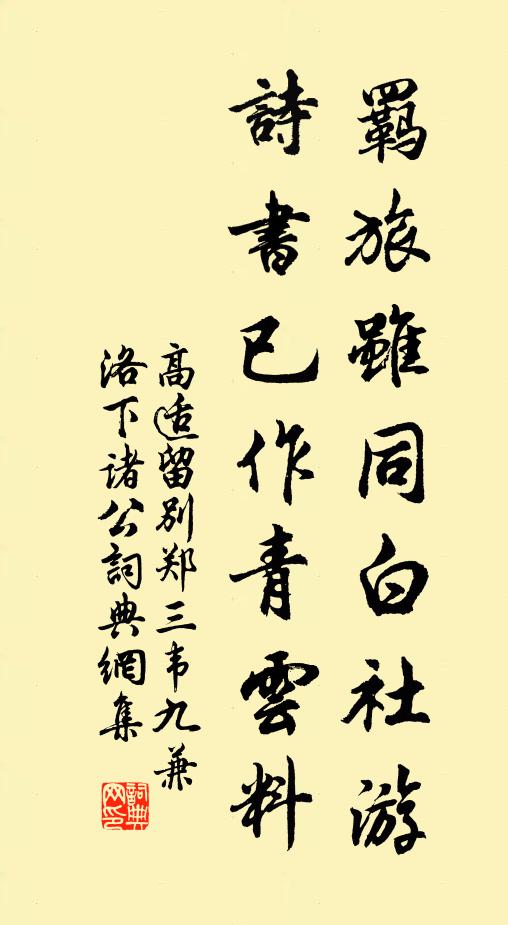 羈旅雖同白社游
詩書已作青雲料
高适留别郑三韦九兼
洛下诸公詞典網集
詞典网印